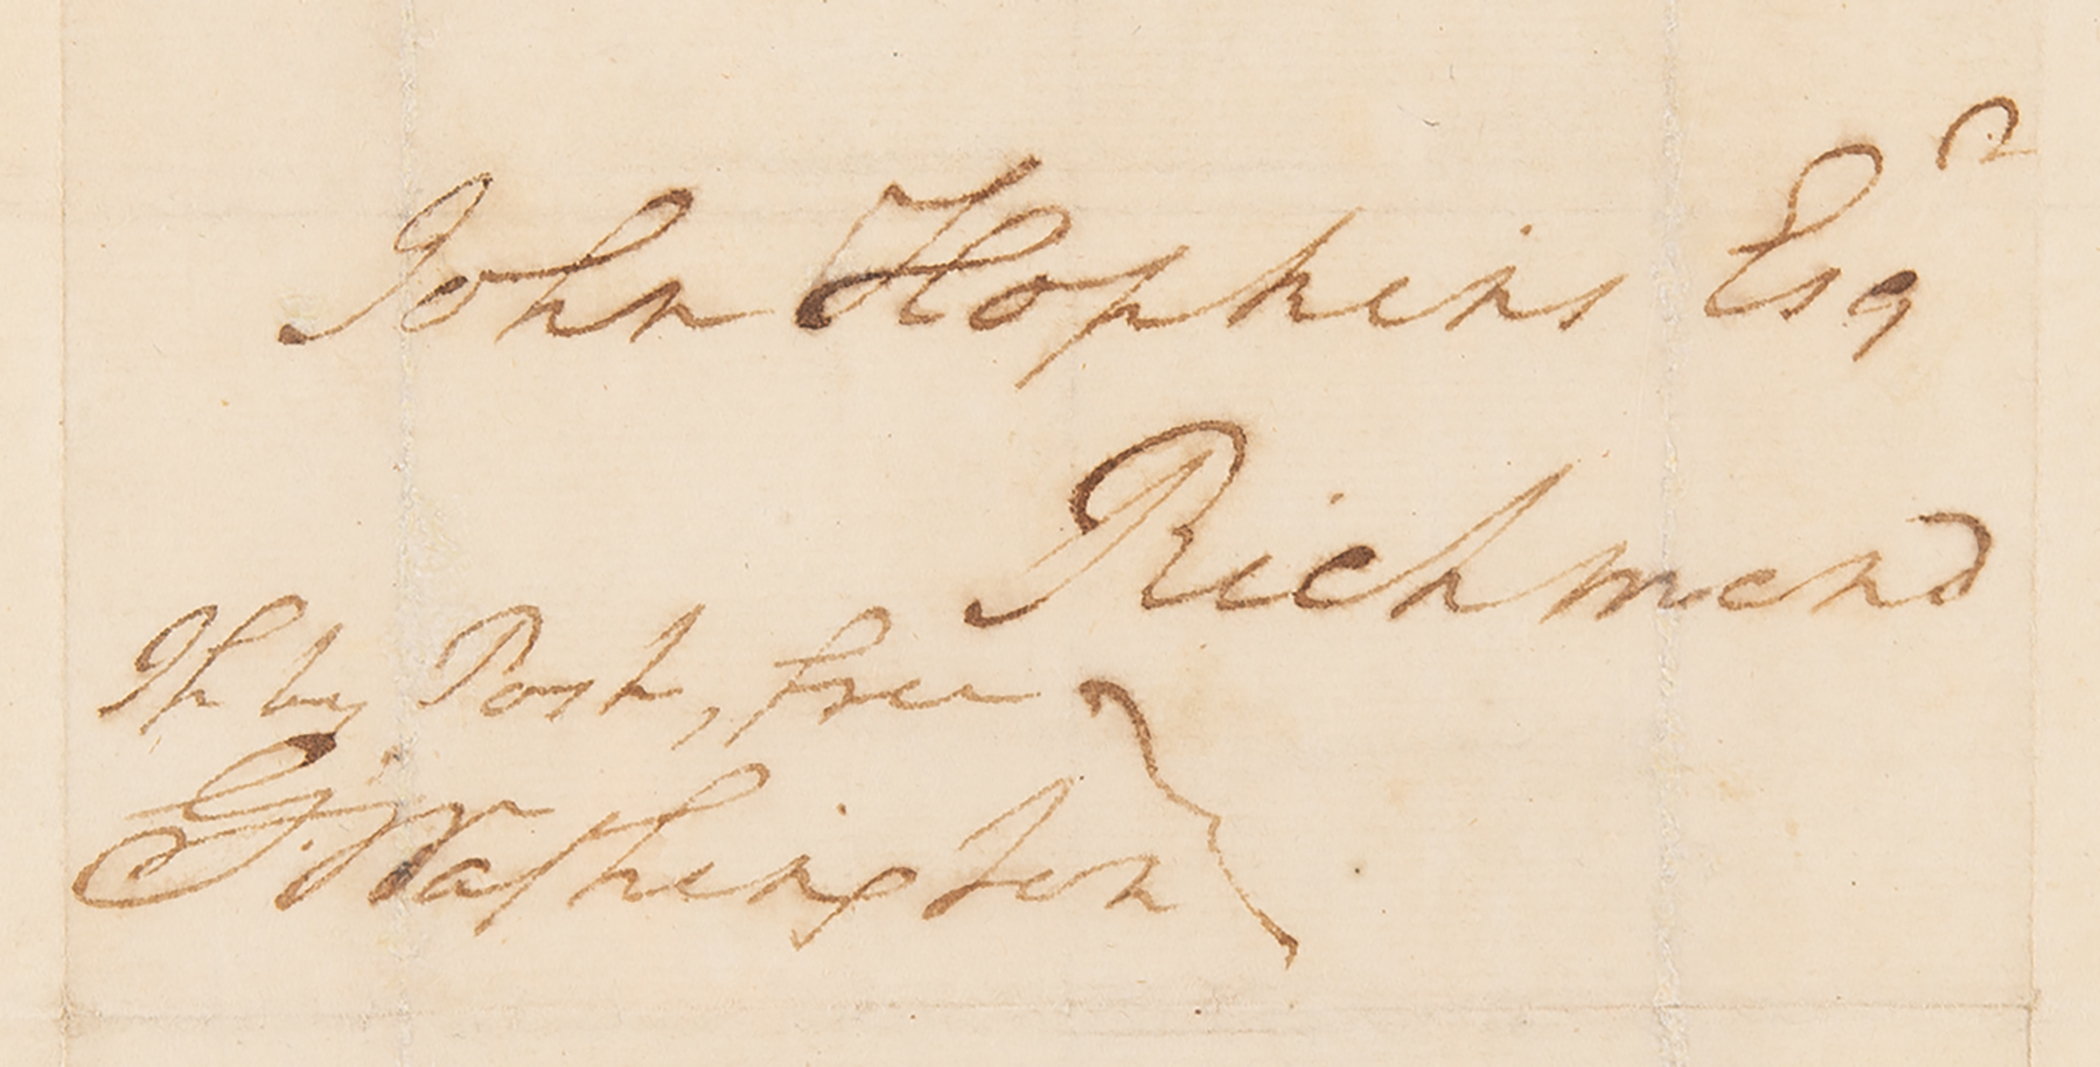 John Hopkins Esqr
Richmond
If by Post, free
G: Washington